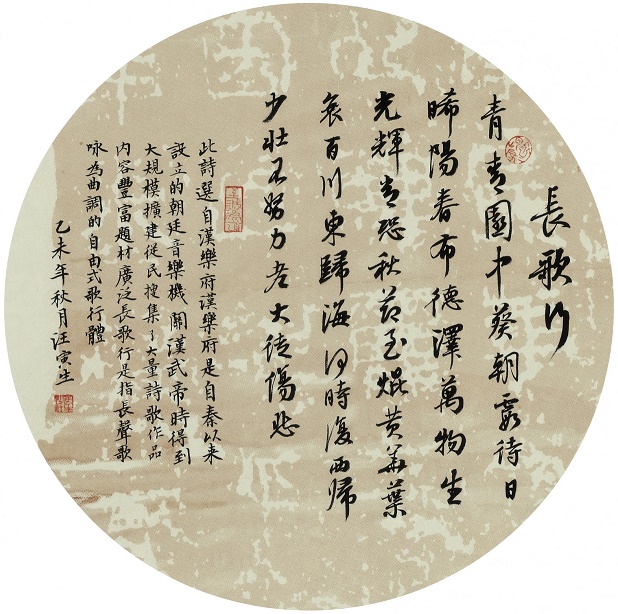 長歌行
青青園中葵朝露待日
晞陽春布德澤萬物生
光輝常恐秋節至焜黄華葉
衰百川東歸海何時復西歸
少壯不努力老大徒傷悲
此詩選自漢樂府漢樂府是自秦以来
設立的朝廷音樂機關漢武帝時得到
大規模擴建從民搜集了大量詩歌作品
内容豐富題材廣泛長歌行是指長聲歌
咏為曲調的自由式歌行體
乙未年秋月汪寅生